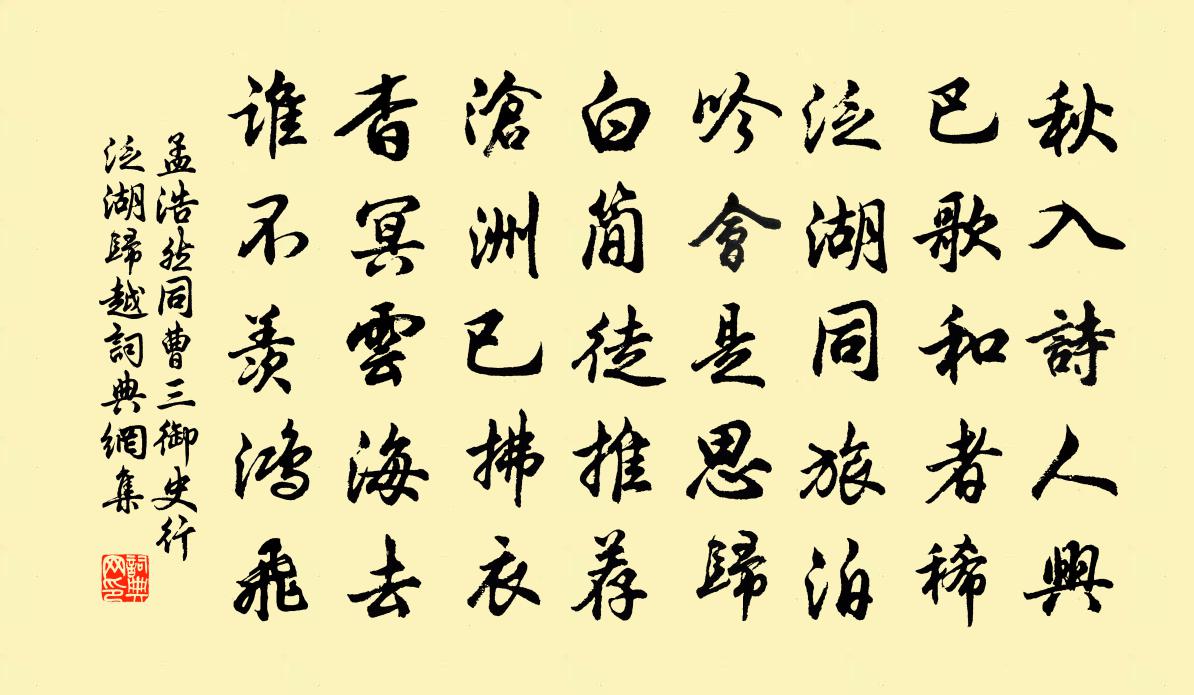 秋入詩人興
巴歌和者稀
泛湖同旅泊
吟會是思歸
白簡徒推荐
滄洲已拂衣
杳冥雲海去
谁不羨鴻飛
孟浩然同曹三御史行
泛湖歸越詞典網集
詞典
网印